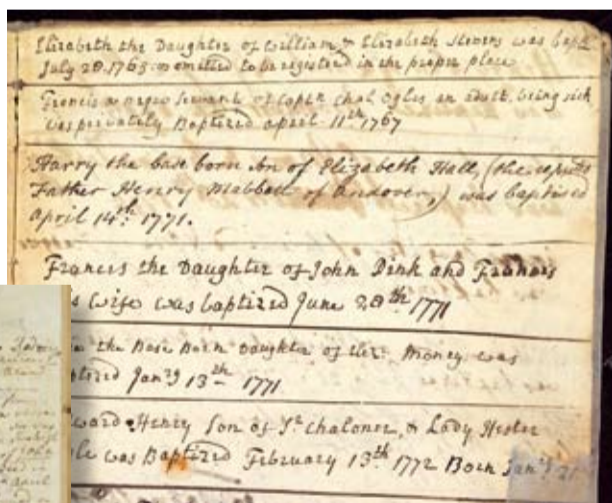 Elizabeth the Daughter of William & Elizabeth Stevens was bapt.
July 28. 1765 omitted to be registered in the proper place
Francis a negro servant of Captn Chal Ogles an adult, being sick
was privately Baptized April 11th 1767
Harry the base born Son of Elizabeth Hall, (the reputed
Father Henry Mabbott of Andover,) was baptised
April 14th 1771.
Frances the Daughter of John Dink and Frances
Wife was baptized June 28th 1771
the Base Born Daughter of Eliz: Money was
Jan:y 13th 1771
Henry Son of Sr Chaloner, & Lady Hester
was Baptized February 13th 1772 Born Jan:y 21